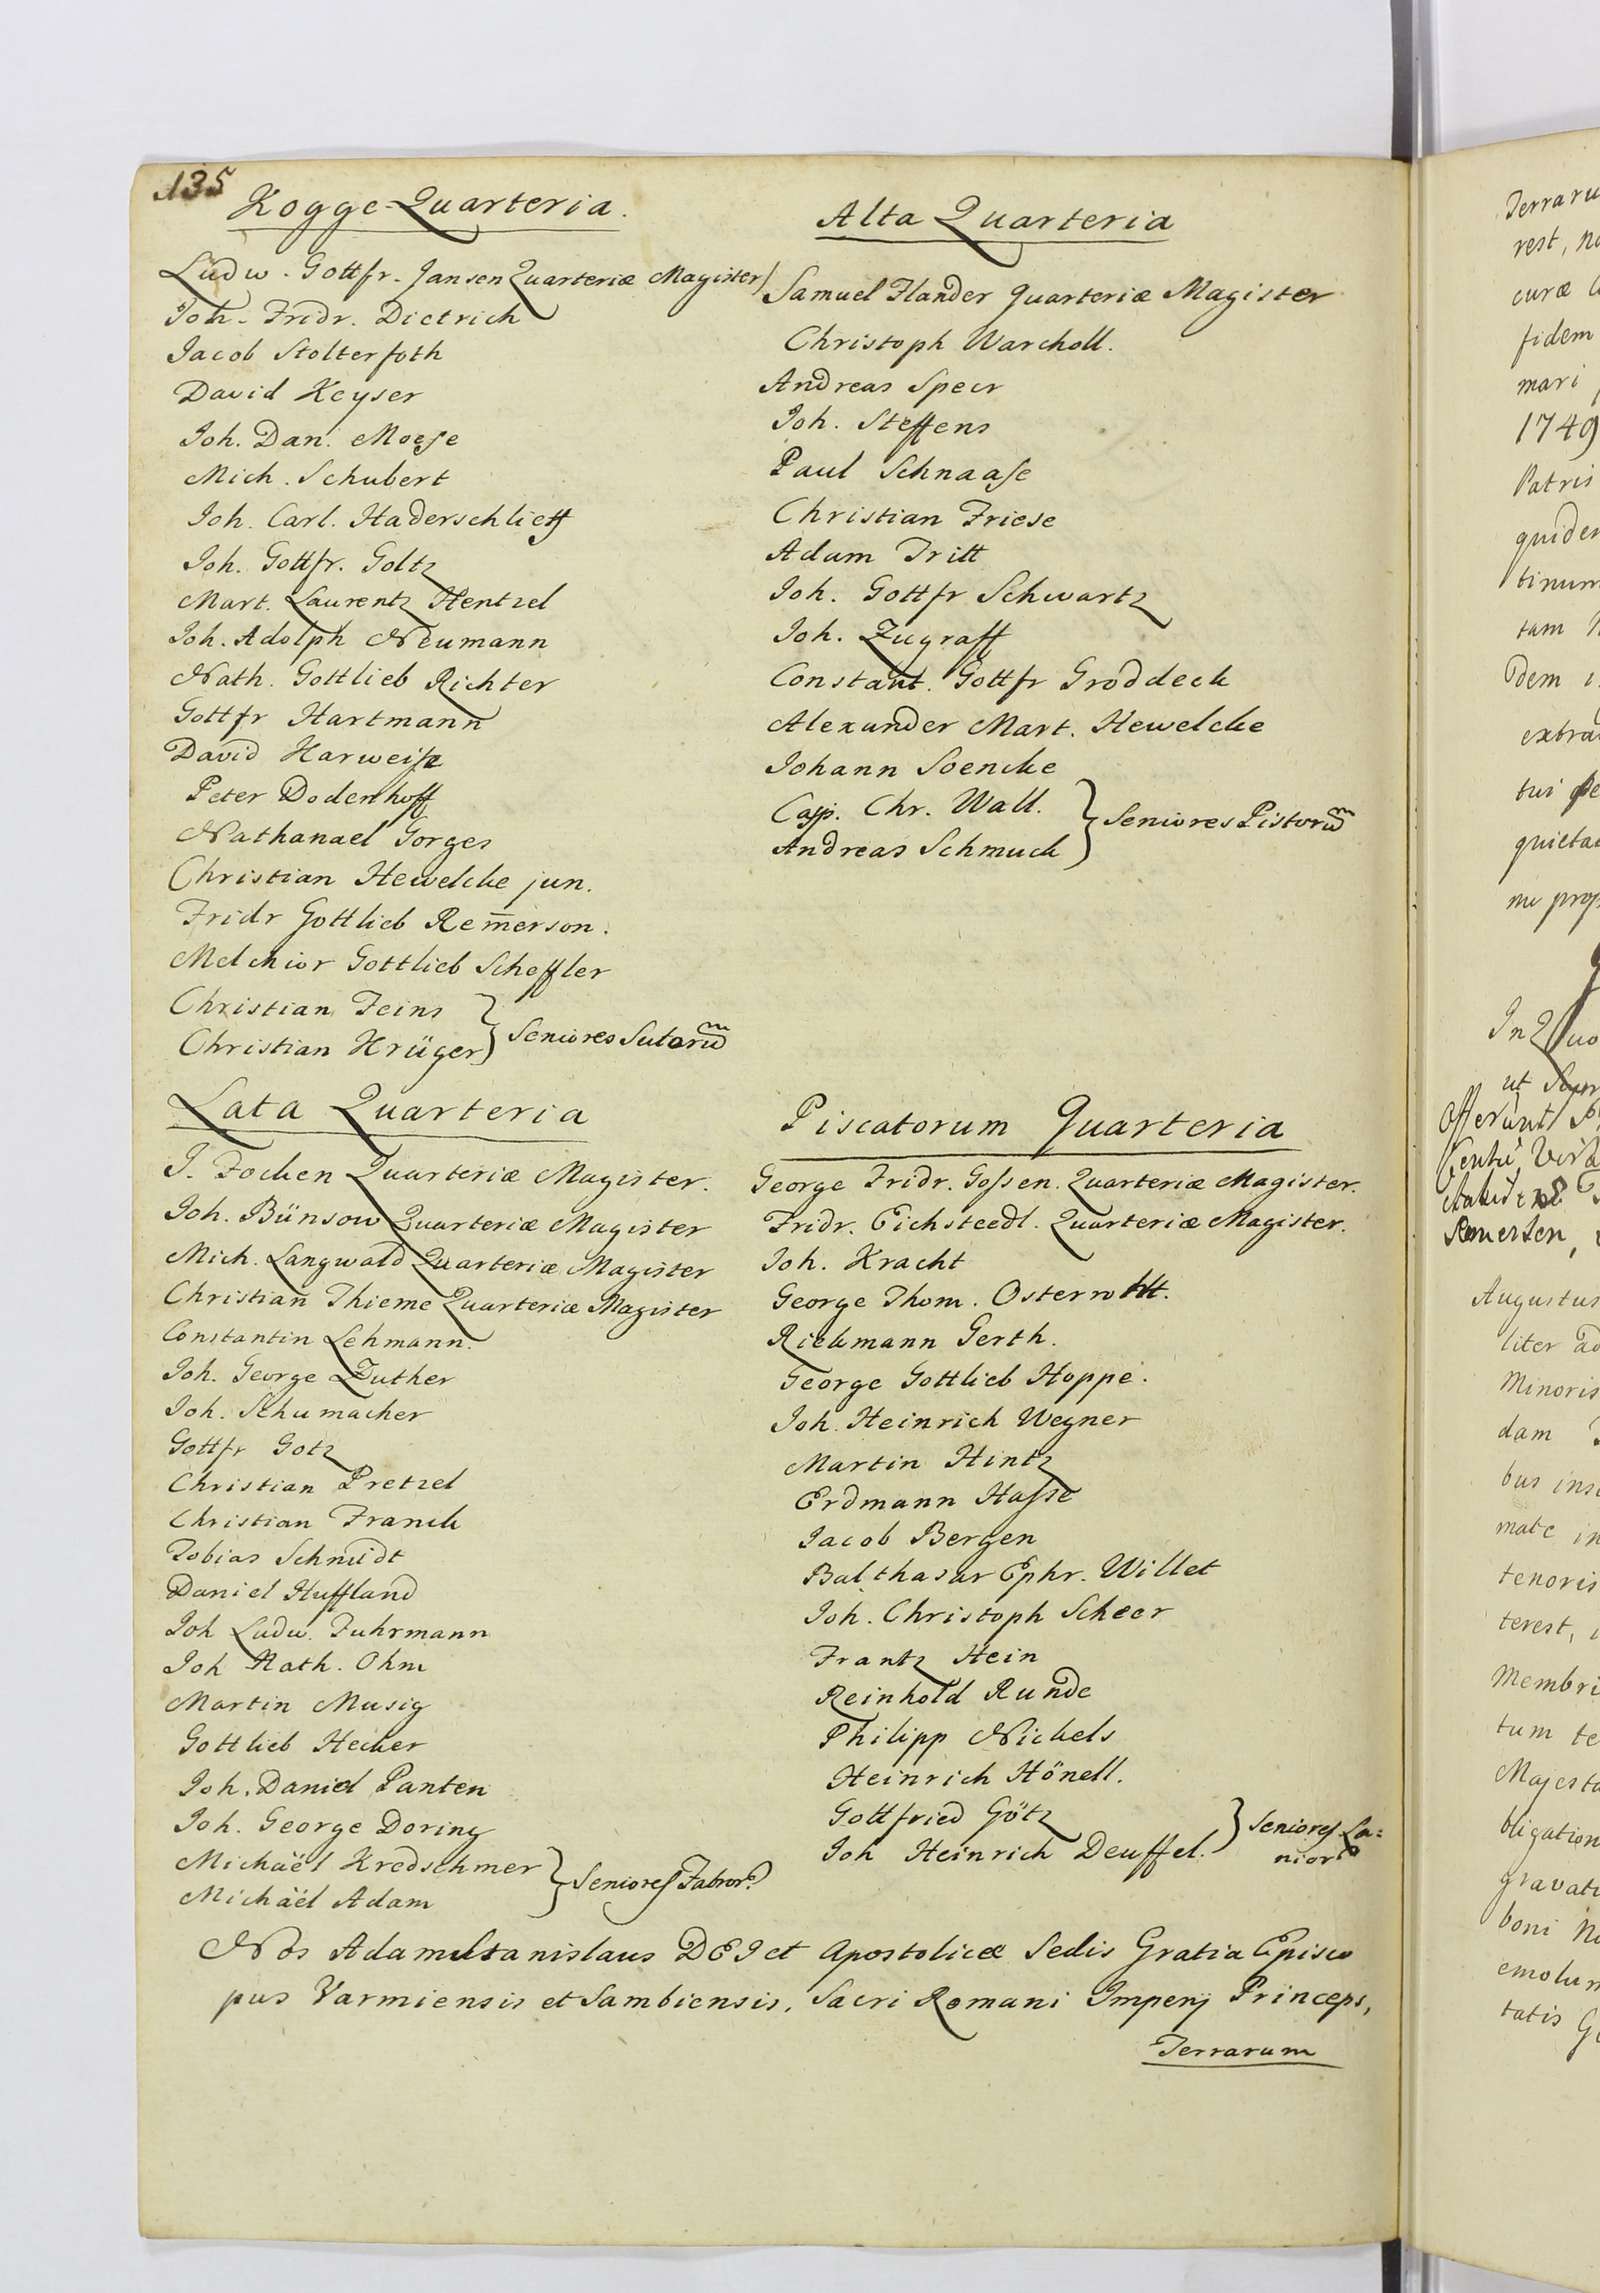 135
Kogge-Quarteria.
Ludw. Gottfr. Jansen Quarteriæ Magister
Joh. Fridr. Dietrich
Jacob Stolterfoth
David Keyser
Joh. Dan. Moese
Mich. Schubert
Joh. Carl. Haderschlieff
Joh. Gottfr. Goltz
Mart. Laurentz Hentzel
Joh. Adolph Neumann
Nath. Gottlieb Richter
Gottfr Hartmann
David Harweise
Peter Dodenhoff
Nathanael Gorges
Christian Hewelcke jun.
Fridr Gottlieb Rem̄erson.
Melchior Gottlieb Scheffler
Christian Feins
Christian Krüger } Seniores Sutorũ
Alta Quarteria
Samuel Flander quarteriæ Magister
Christoph Warcholl.
Andreas Speer
Joh. Steffens
Paul Schnaase
Christian Friese
Adam Tritt
Joh. Gottfr Schwartz
Joh. Zugraff
Constant. Gottfr Groddeck
Alexander Mart. Hewelcke
Johann Soencke
Casp. Chr. Wall.
Andreas Schmuck } Seniores Pistorũ
Lata Quarteria
J. Focken Quarteriæ Magister.
Joh. Bünsow Quarteriæ Magister
Mich. Langwald Quarteriæ Magister
Christian Thieme Quarteriæ Magister
Constantin Lehmann.
Joh. George Zuther
Joh. Schumacher
Gottfr Gotz
Christian Pretzel
Christian Franck
Tobias Schmidt
Daniel Huffland
Joh Ludw. Fuhrmann
Joh Nath. Ohm
Martin Musig
Gottlieb Hecker
Joh. Daniel Panten
Joh. George Doring
Michaël Kredschmer
Michäël Adam } Seniores Fabror.
Piscatorum Quarteria
George Fridr. Gossen. Quarteriæ Magister.
Fridr. Eichsteedt. Quarteriæ Magister.
Joh. Kracht
George Thom. Osterroht.
Riekmann Gerth.
George Gottlieb Hoppe.
Joh. Heinrich Wegner
Martin Hintz
Erdmann Hasse
Jacob Bergen
Balthasar Ephr. Willet
Joh. Christoph Scheer
Frantz Hein
Reinhold Runde
Philipp Nickels
Heinrich Hönell.
Gottfried Götz
Joh Heinrich Deuffel. } Seniores La=
nior
Nos Adamus Stanislaus DEI et Apostolicæ Sedis Gratia Episco
pus Varmiensis et Sambiensis, Sacri Romani Imperij Princeps,
Terrarum
rest,
curæ
fidem
mari
1749
Patris
tam
dem
tui
Augustus
liter
Minoris
dam
bus
tenoris
terest,
tum
boni
tatis